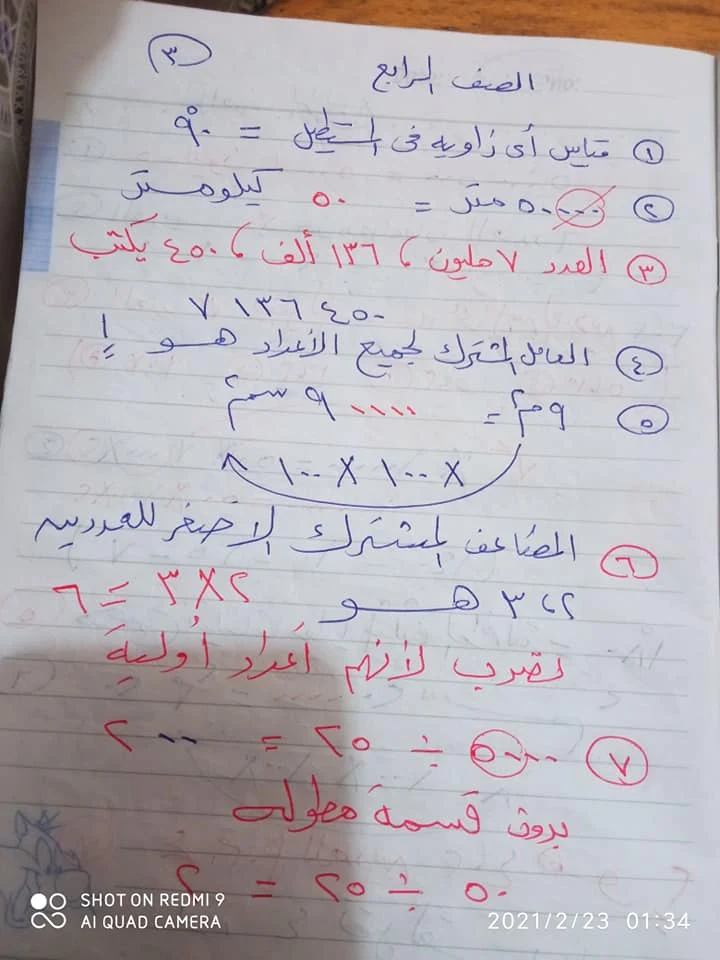 ٣
الصف الرابع
١ قياس أى زاويه فى المستطيل = ٩٠°
٢ ٥٠٠٠٠ متر = ٥٠ كيلومتر
٣ العدد ٧ مليون ، ١٣٦ ألف ، ٤٥٠ يكتب
٧ ١٣٦ ٤٥٠
٤ العامل المشترك لجميع الأعداد هو ١
٥ ٩ م٢ = ٩٠٠٠٠ سم٢
× ١٠٠ × ١٠٠
٦ المضاعف المشترك الاصغر للعددين
٢ ، ٣ هو ٢ × ٣ = ٦
نضرب لأنهم أعداد أولية
٧ ٥٠٠٠ ÷ ٢٥ = ٢٠٠
بدون قسمة مطوله
٥٠ ÷ ٢٥ = ٢
SHOT ON REDMI 9
AI QUAD CAMERA
2021/2/23 01:34